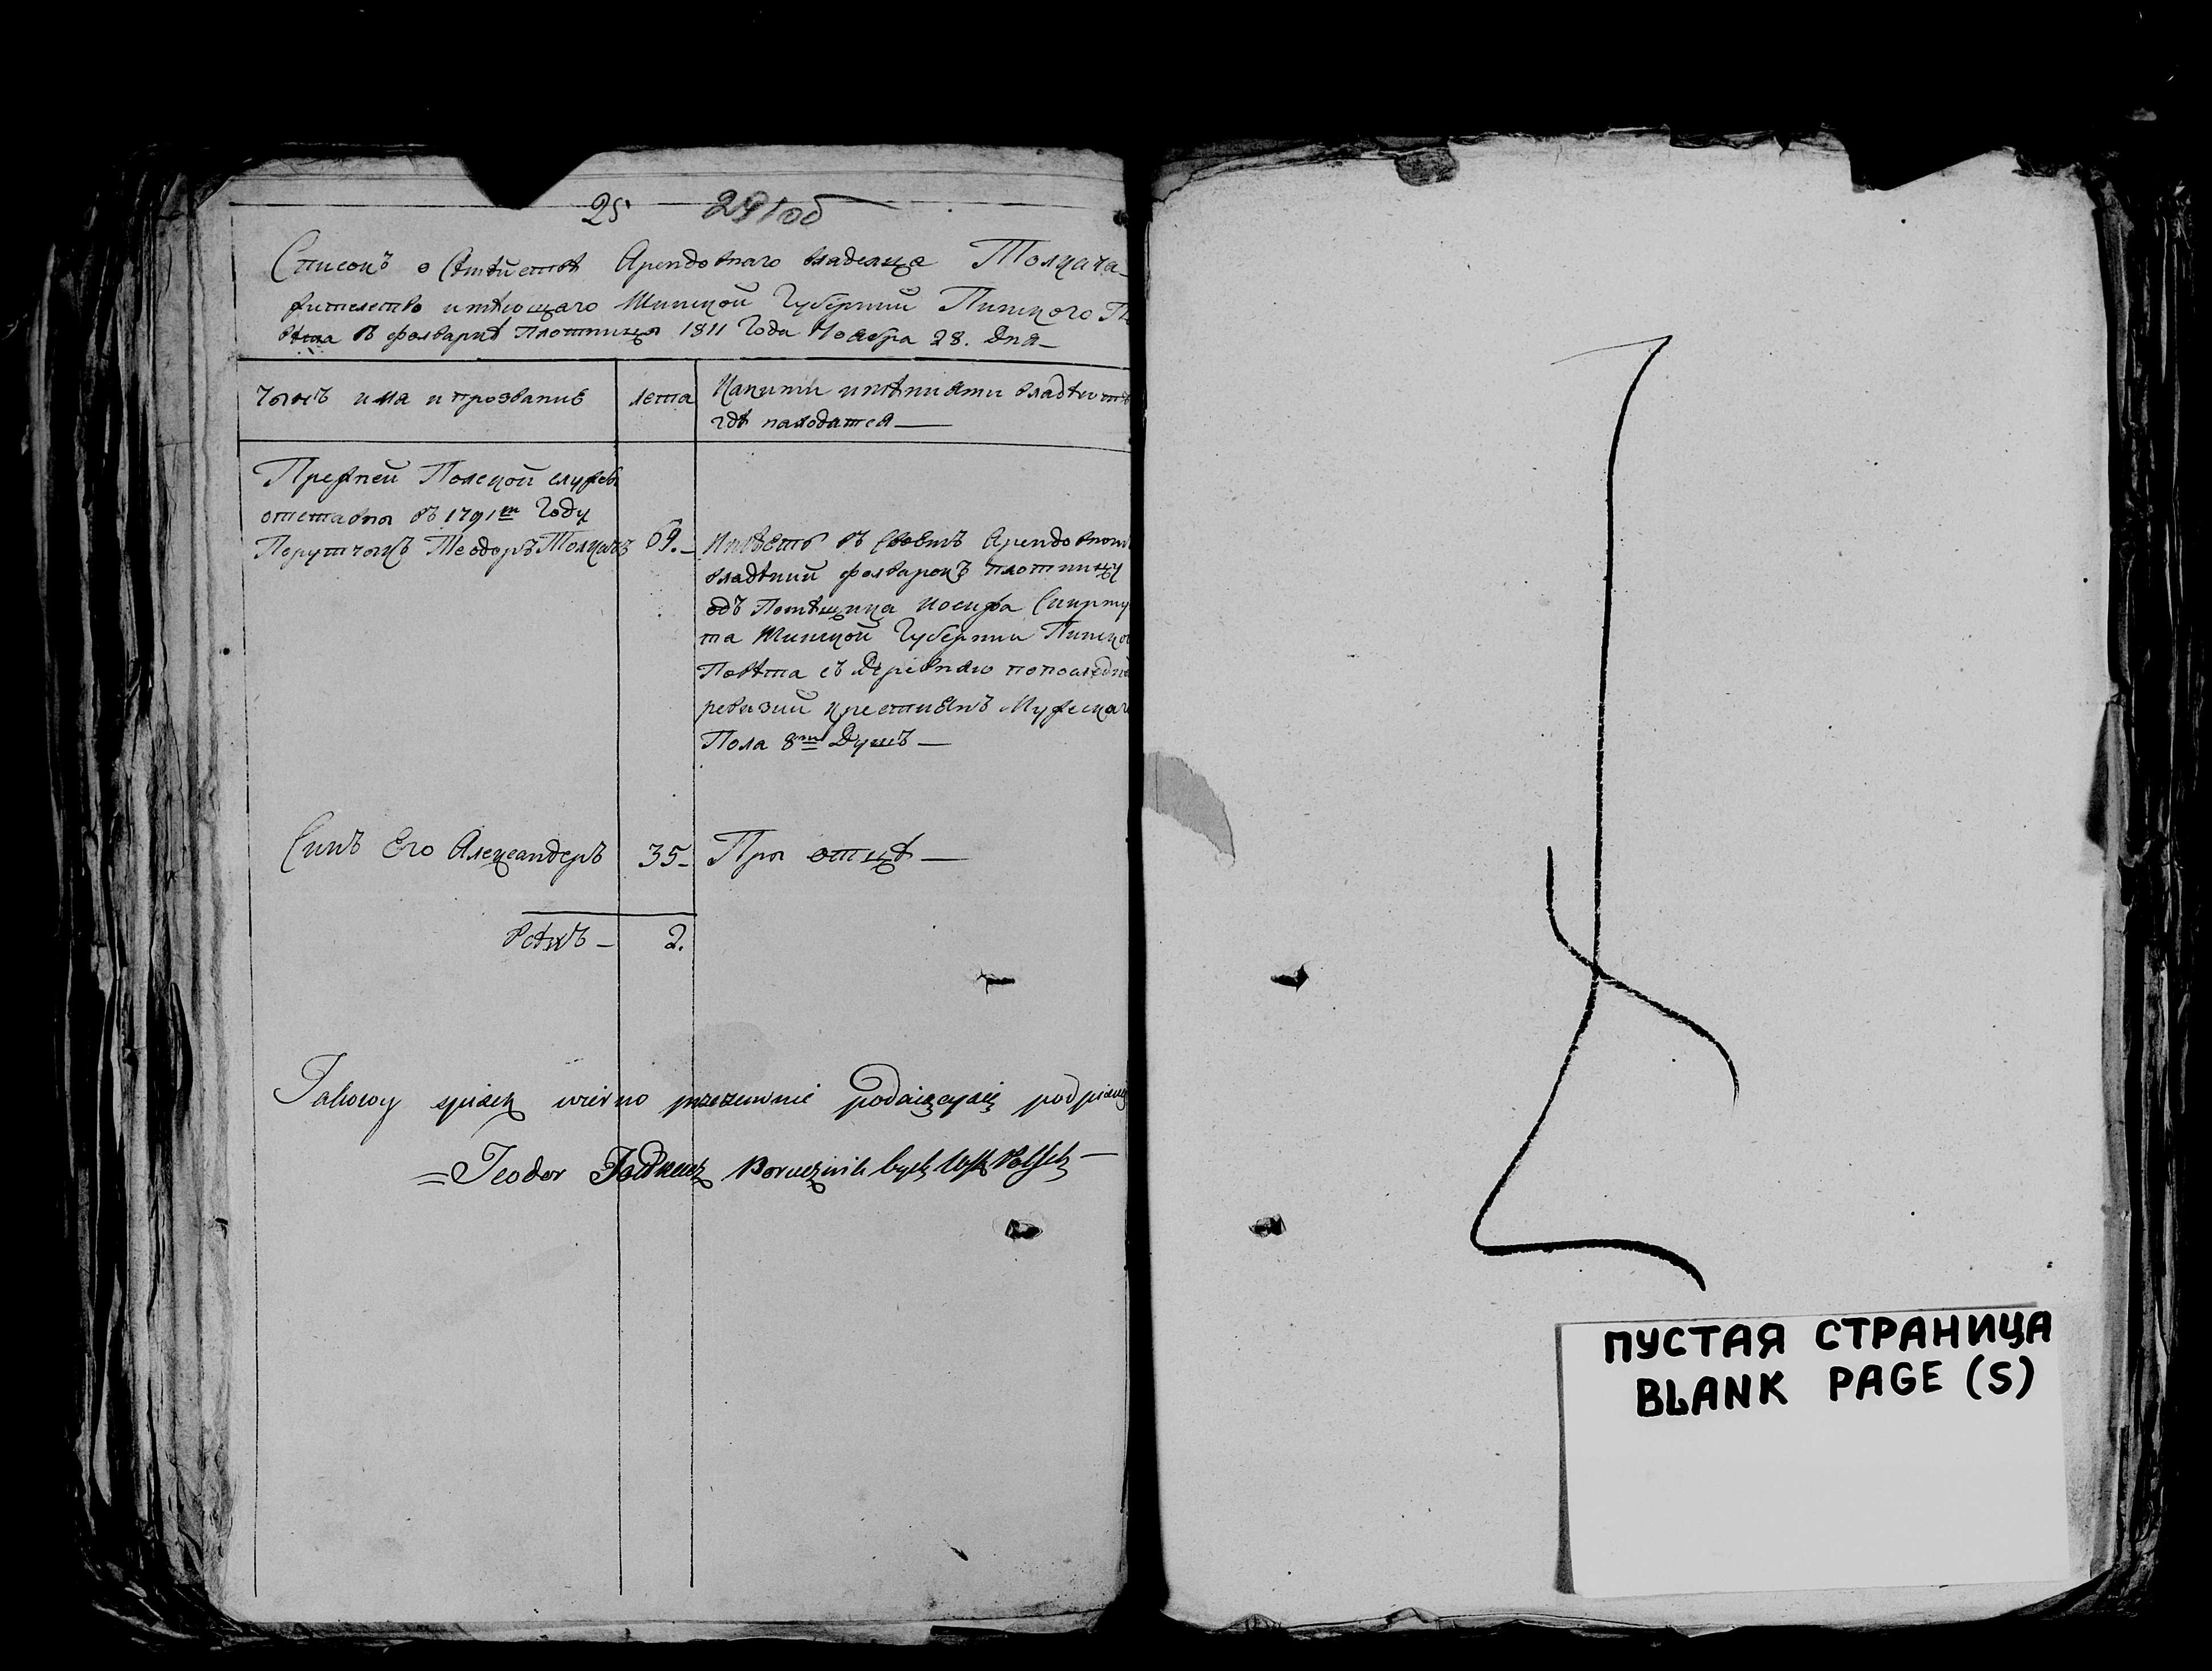 25 291 об
Списокъ о Семѣйствѣ Арендовнаго владелца Толкача
жителство имѣющаго Минской Губѣрнии Пинского По
вѣта в фолваркѣ Плотницы 1811 Года Ноебра 28. Дня
Чынъ имя и прозвание
лета
Какими имѣниями владѣит
гдѣ находятся
Прежней Полской служби
отставны въ 1791м Году
Поручыкъ Теодоръ Толкачъ
69.
Имѣетъ въ своемъ Арендовном
владѣнии фолварокъ плотницу
одъ Помѣщика Иосифа Скирму
та Минской Губернии Пинско
Повѣта съ деревнию по последне
ревизии крестиянъ Мужескаго
Пола 8м Душъ
Синъ Его Александеръ
35
Пры отцѣ
Всѣхъ
2.
Takowy spisek wierno przezemnie podpisuię
Teodor Porucznik Woysk Polsk
ПУСТАЯ СТРАНИЦА
BLANK PAGE (S)